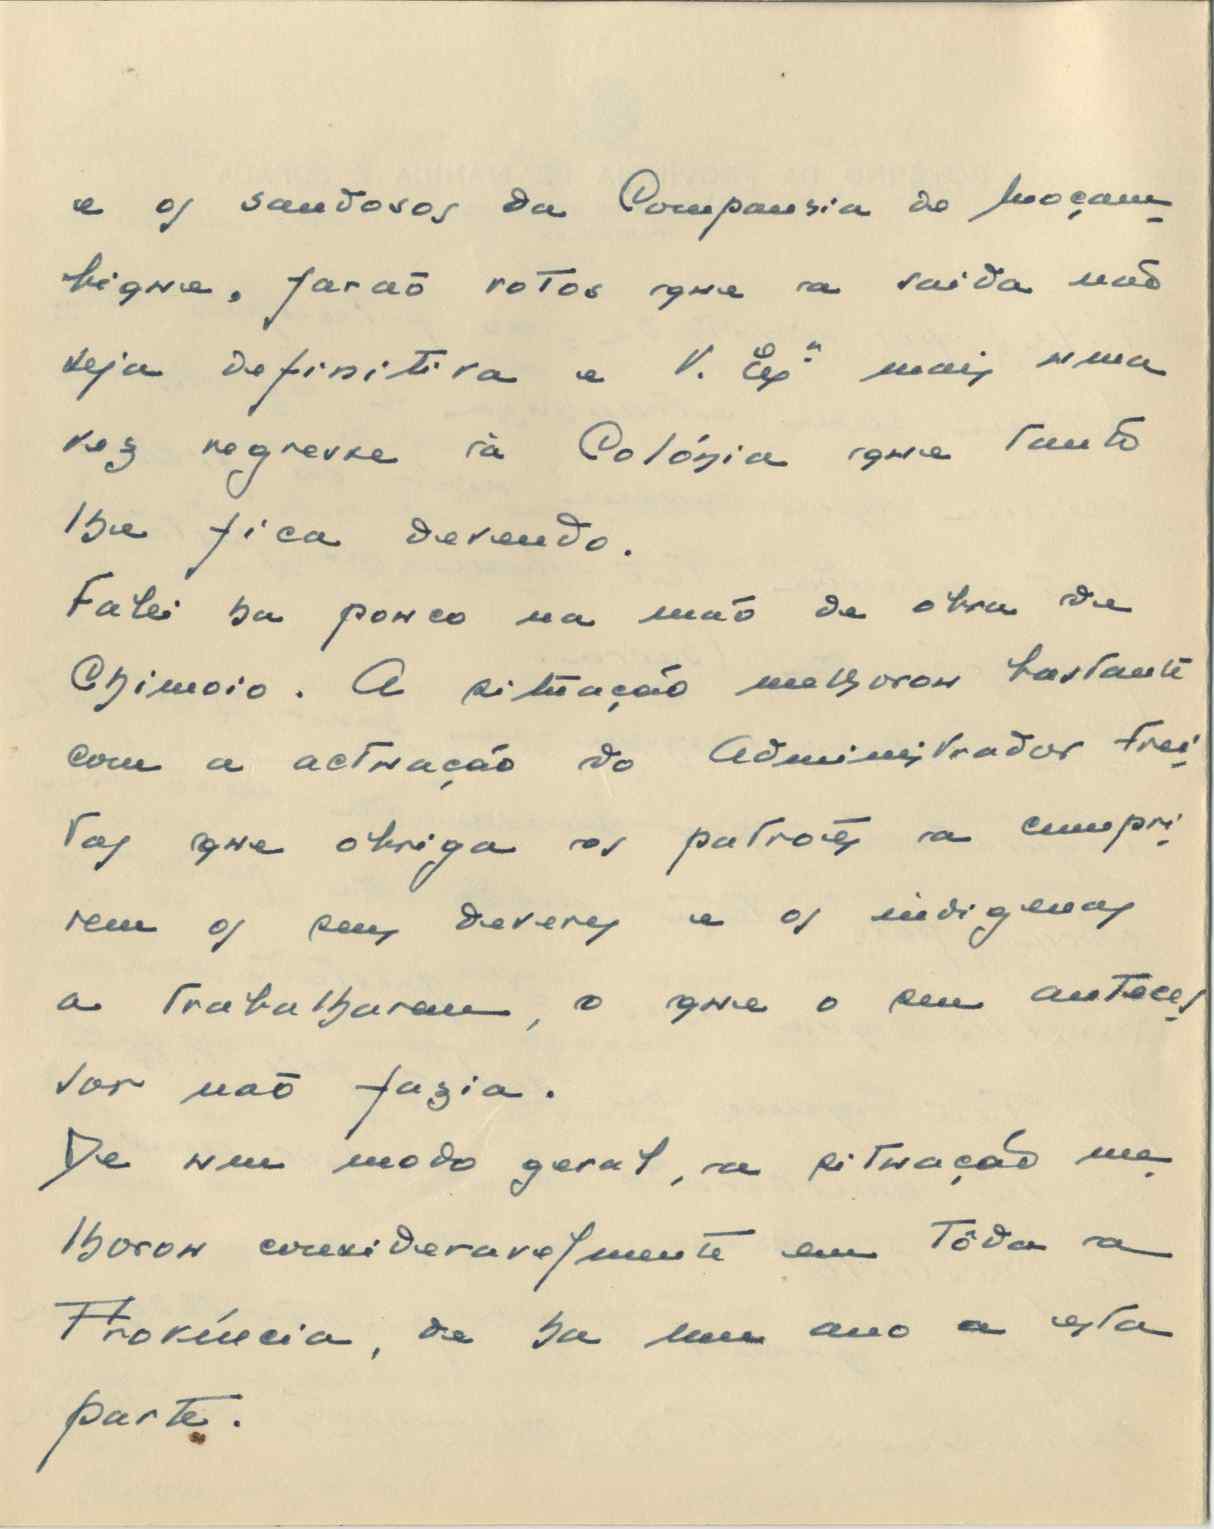 e os saudosos da Companhia de Moçam-
bique, farão votos que a saida não
seja definitiva e V. Exª mais uma
vez regresse à Colónia que tanto
lhe fica devendo.
Falei ha pouco na mão de obra de
Chimoio. A situação melhorou bastante
com a actuação do Administrador Frei-
tas que obriga os patrões a cumpri-
rem os seus deveres e os indigenas
a trabalharem, o que o seu anteces-
sor não fazia.
De um modo geral, a situação me-
lhorou consideravelmente em tôda a
Província, de ha um ano a esta
parte.